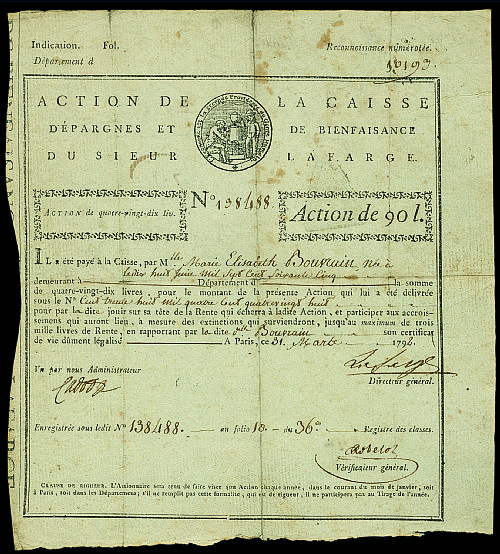 Indication. Fol. Reconnoissance numérotée.
Département d 10193
ACTION DE LA CAISSE
D'ÉPARGNES ET DE BIENFAISANCE
DU SIEUR LAFARGE.
ACTION de quatre-vingt-dix liv. N° 138488 Action de 90 l.
IL a été payé à la Caisse, par M lle Marie Elisabeth Bouvrain née à
le dix huit Juin Mil Sept Cent Soixante Cinq
demeurant à Département d la somme
de quatre-vingt-dix livres, pour le montant de la présente Action, qui lui a été délivrée
sous le N° Cent trente huit mil quatre Cent quatre vingt huit
pour par la dite jouir sur sa tête de la Rente qui écherra à ladite Action, et participer aux accrois-
semens qui auront lieu, à mesure des extinctions qui surviendront, jusqu'au maximum de trois
mille livres de Rente, en rapportant par la dite dlle Bouvrain son certificat
de vie dûment légalisé A Paris, ce 31. Mars 1792.
Vu par nous Administrateur Lafarge
Directeur général.
Enregistrée sous ledit N° 138488 au folio 10 du 36e Registre des classes.
Vérificateur général.
CLAUSE DE RIGUEUR. L'Actionnaire sera tenu de faire viser son Action chaque année, dans le courant du mois de janvier, soit
à Paris, soit dans les Départemens; s'il ne remplit pas cette formalité, qui est de rigueur, il ne participera pas au Tirage de l'année.